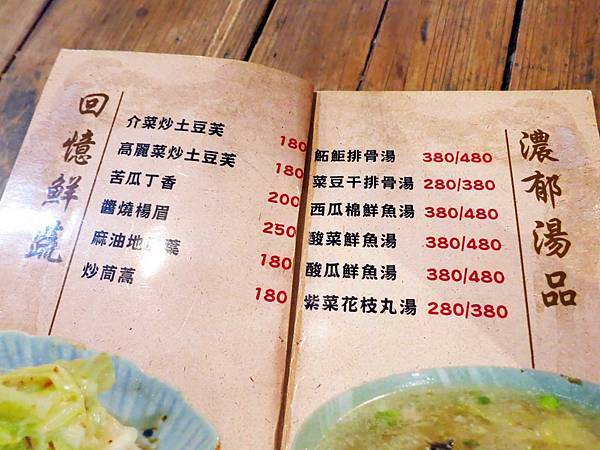 回憶鮮蔬
介菜炒土豆芙 180
高麗菜炒土豆芙 180
苦瓜丁香 200
醬燒楊眉 250
麻油地 葉 180
炒茼蒿 180
濃郁湯品
魠鮔排骨湯 380/480
菜豆干排骨湯 280/380
西瓜棉鮮魚湯 380/480
酸菜鮮魚湯 380/480
酸瓜鮮魚湯 380/480
紫菜花枝丸湯 280/380